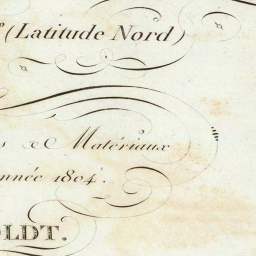 (Latitude Nord)
& Matériaux
année 1804.
OLDT.